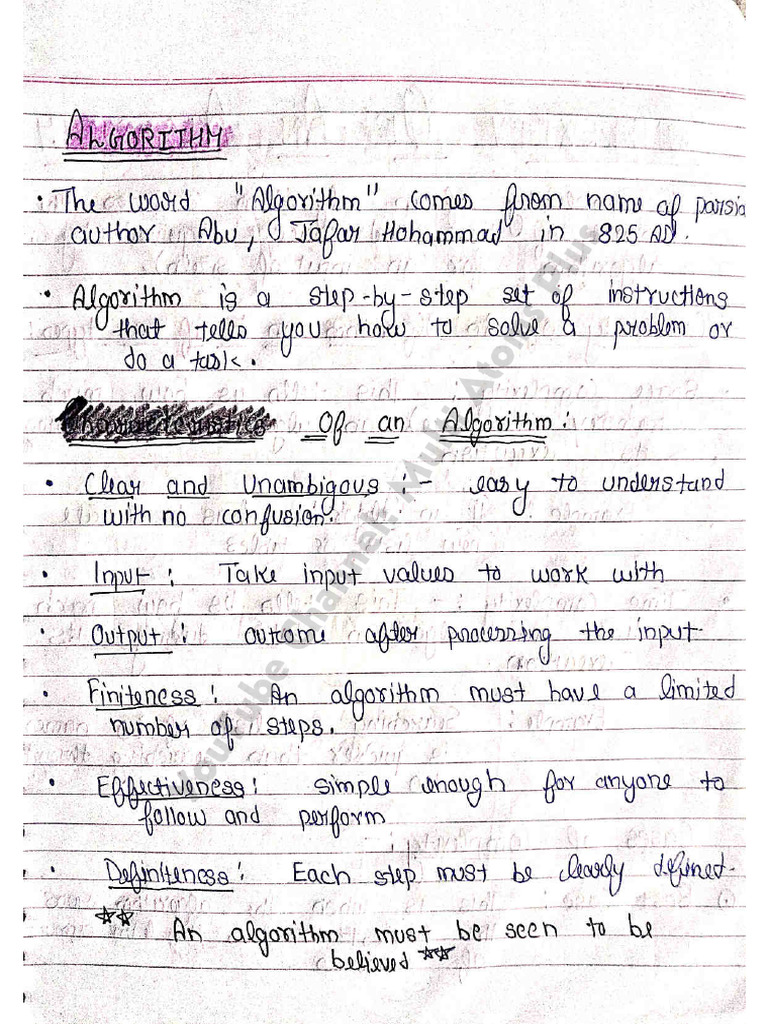 ALGORITHM
• The word "Algorithm" comes from name of parsia
author Abu, Jafar Mohammad in 825 AD.
• Algorithm is a step-by-step set of instructions
that tells you how to solve a problem or
do a task.
Of an Algorithm:
• Clear and Unambigous - easy to understand
with no confusion.
• Input: Take input values to work with
• Output: outcome after processing the input
• Finiteness: An algorithm must have a limited
number of steps.
• Effectiveness: simple enough for anyone to
follow and perform
• Definiteness: Each step must be clearly defined.
** An algorithm must be seen to be
believed **
YouTube Channel: Multi Atoms Plus